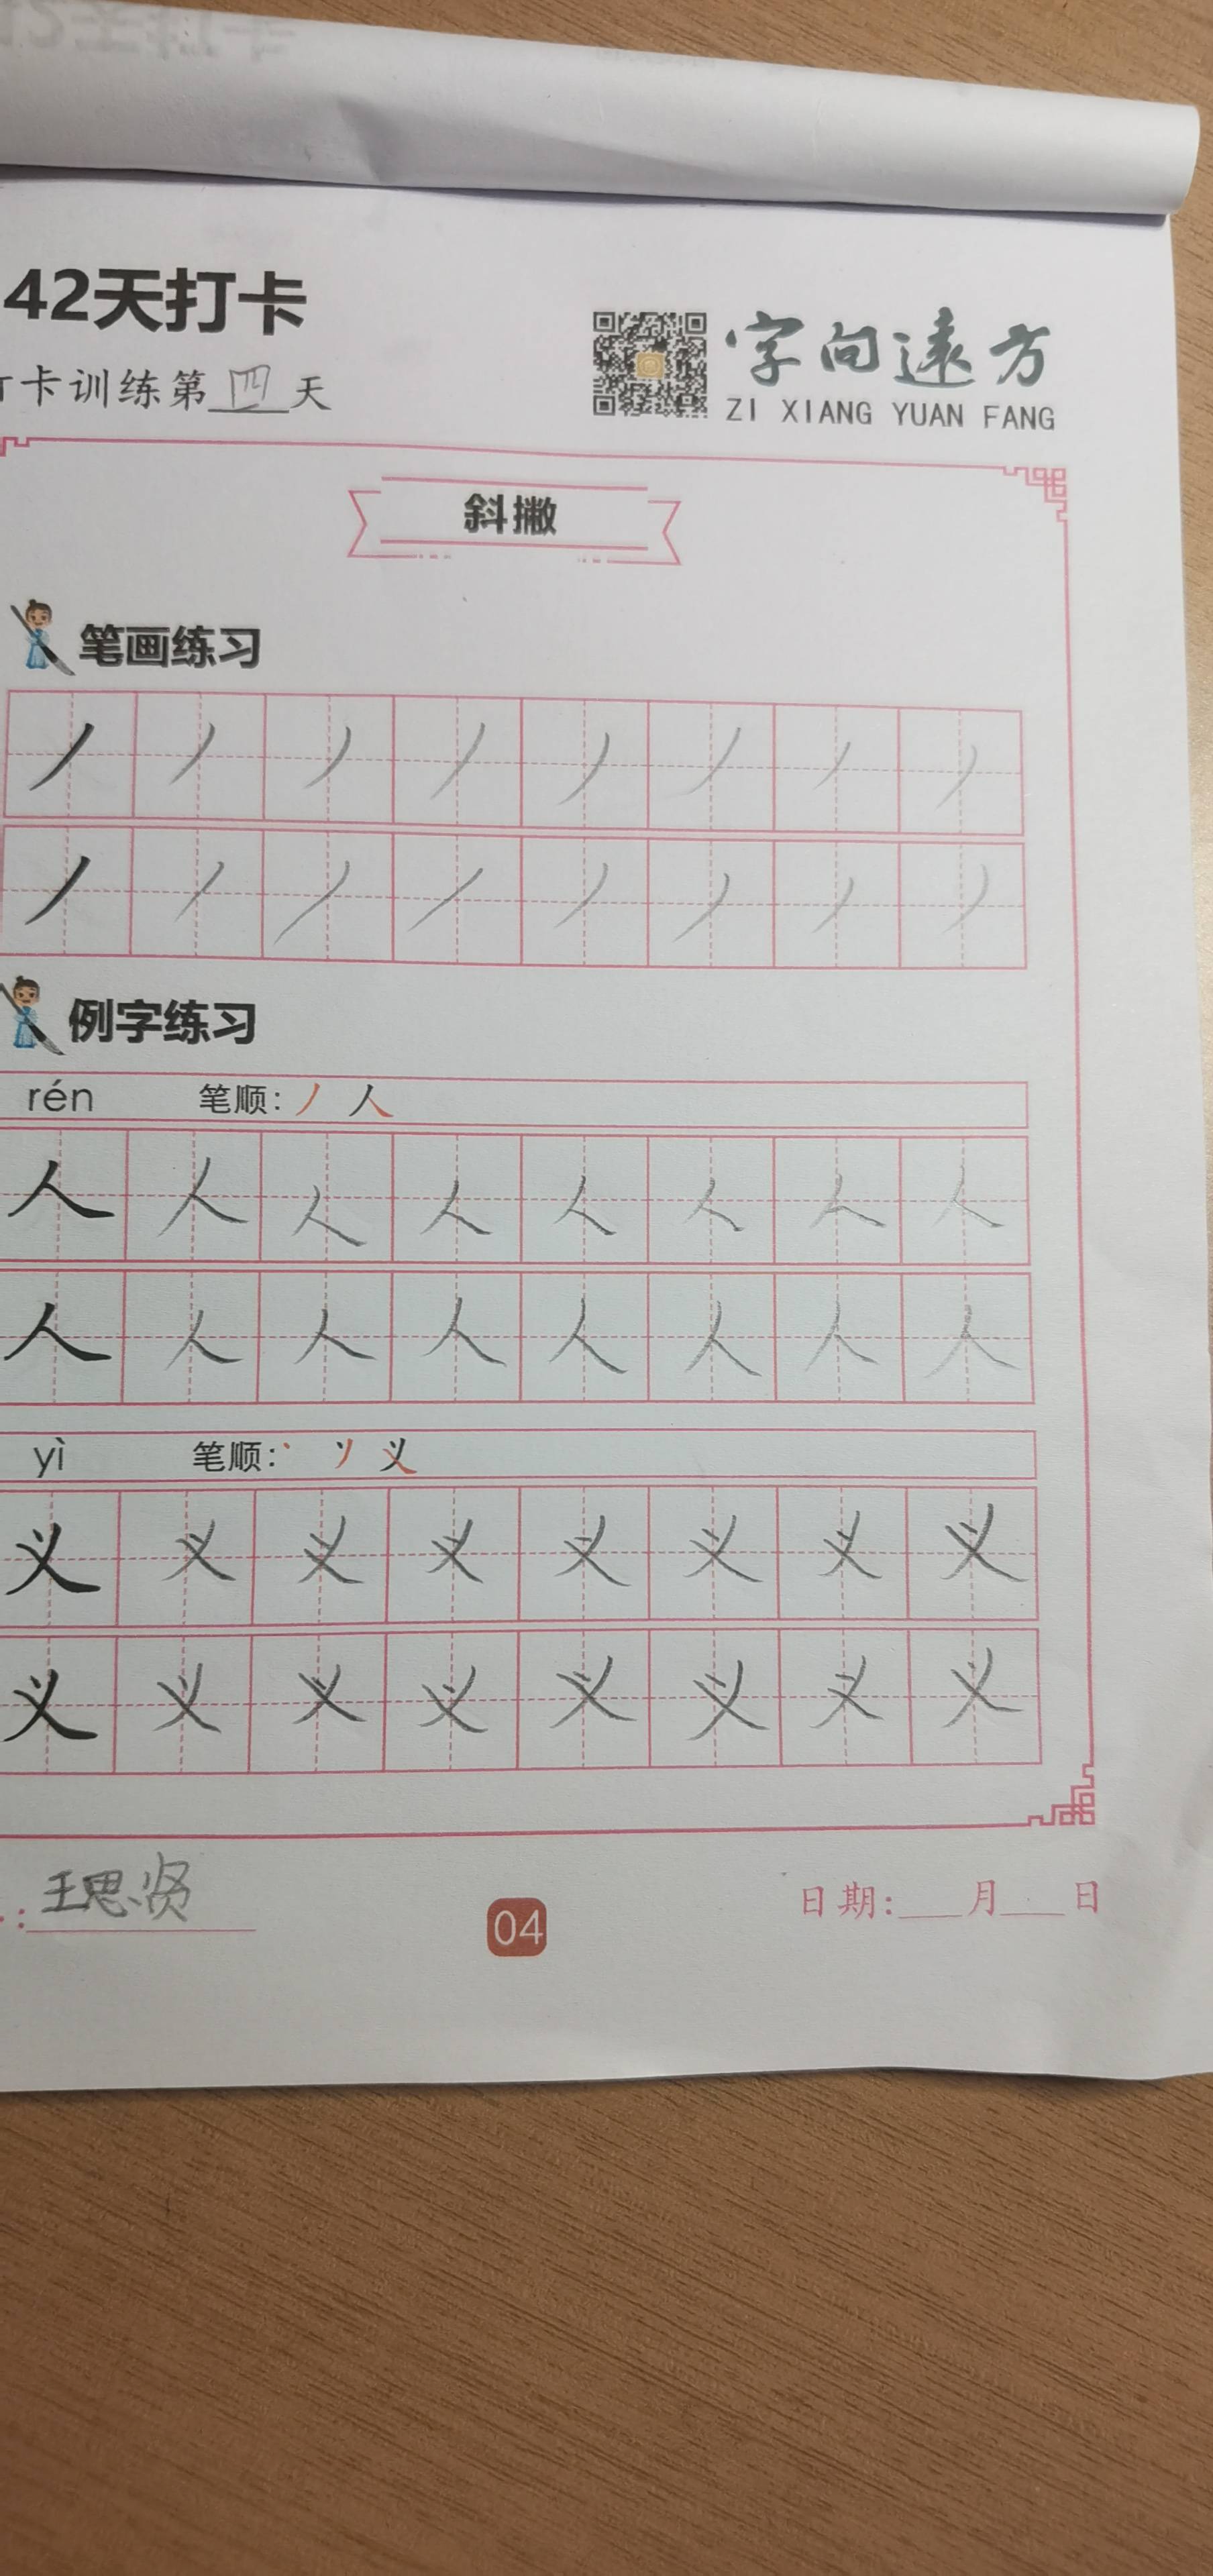 42天打卡
打卡训练第四天
字向遠方
ZI XIANG YUAN FANG
斜撇
笔画练习
丿 丿 丿 丿 丿 丿 丿 丿
丿 丿 丿 丿 丿 丿 丿 丿
例字练习
rén 笔顺: 丿 人
人 人 人 人 人 人 人 人
人 人 人 人 人 人 人 人
yì 笔顺: 丶 丷 义
义 义 义 义 义 义 义 义
义 义 义 义 义 义 义 义
: 王思贤
04
日期:___月___日